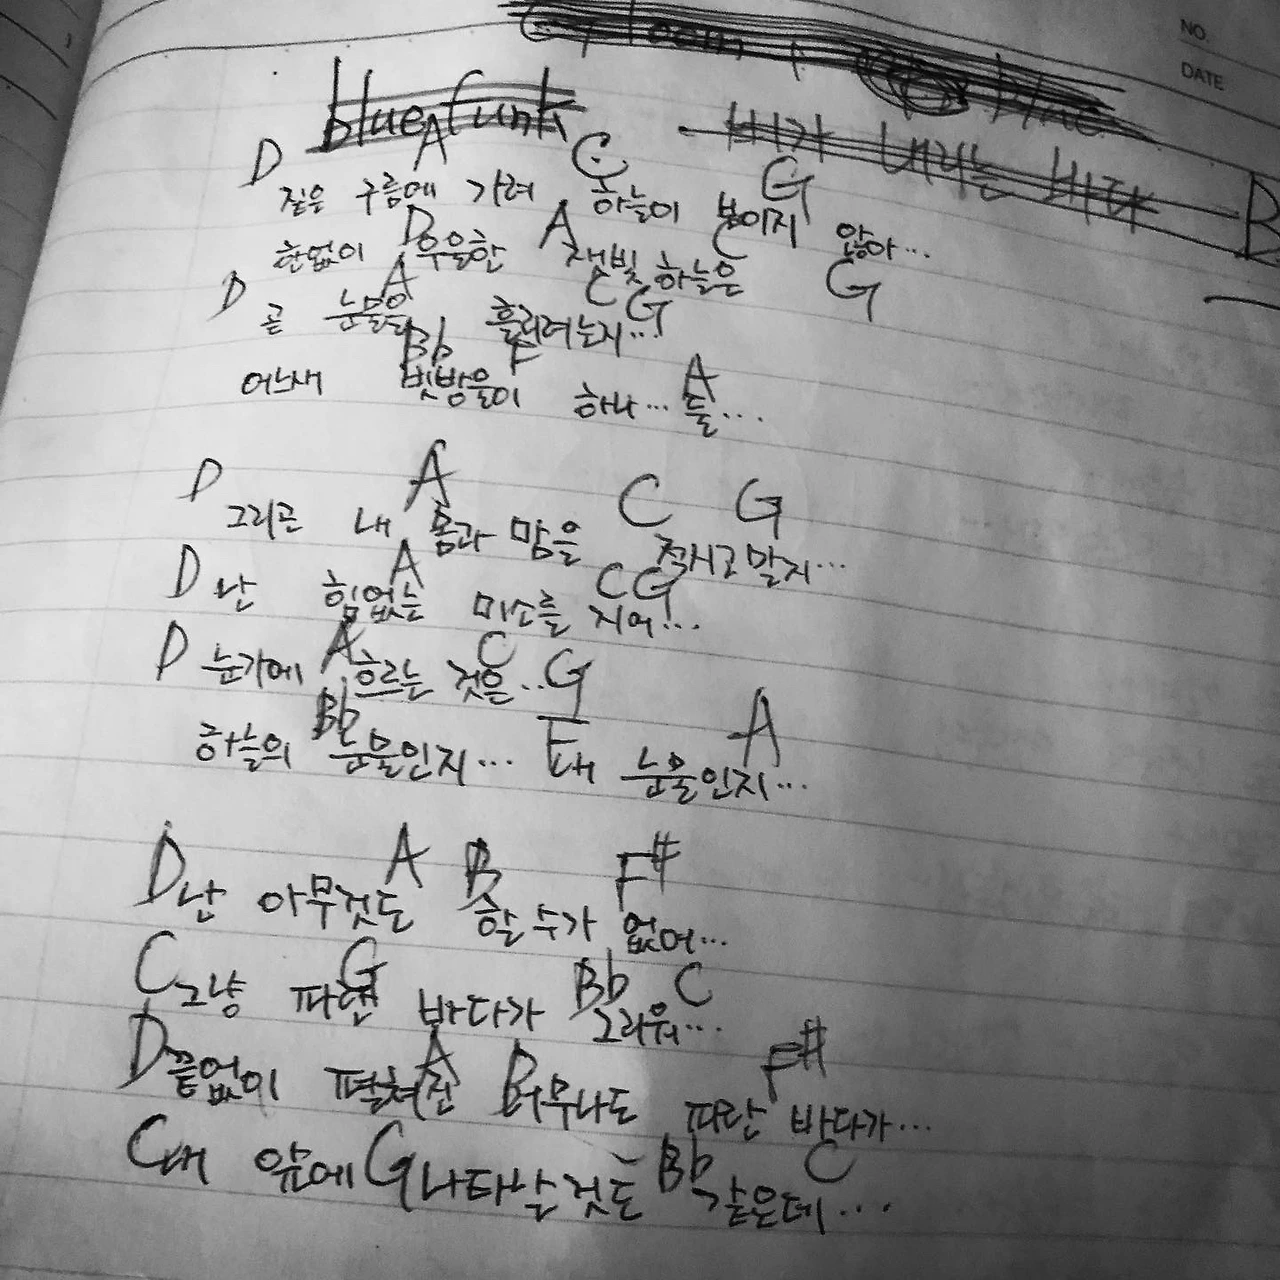 NO.
DATE
blue funk
비가 내리는 바다
B
D A C G
짙은 구름에 가려 하늘이 보이지 않아...
D A C G
한없이 우울한 잿빛 하늘은
D A C G
곧 눈물을 흘리려는지...
Bb F A
어느새 빗방울이 하나... 둘...
D A C G
그리곤 내 몸과 맘을 적시고 말지...
D A C G
난 힘없는 미소를 지어!..
D A C G
눈가에 흐르는 것은...
Bb F A
하늘의 눈물인지... 내 눈물인지...
D A B F#
난 아무것도 할 수가 없어...
C G Bb C
그냥 파란 바다가 그리워...
D A B F#
끝없이 펼쳐진 너무나도 파란 바다가...
C G Bb C
내 앞에 나타날 것도 같은데...